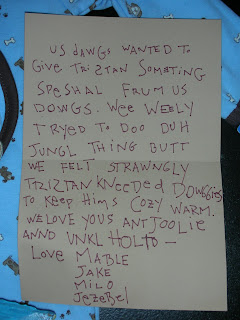 US DAWGS WANTED TO
GIVE TRIZTAN SOMETING
SPESHAL FRUM US
DOWGS. WEE WEELY
TRYED TO DOO DUH
JUNGL THING BUTT
WE FELT STRAWNGLY
TRIZTAN KNEEDED DOWGGIES
TO KEEP HIMS COZY WARM.
WE LOVE YOUS ANT JOOLIE
ANND UNKL HOLTO —
LOVE MABLE
JAKE
MILO
JEZEBEL